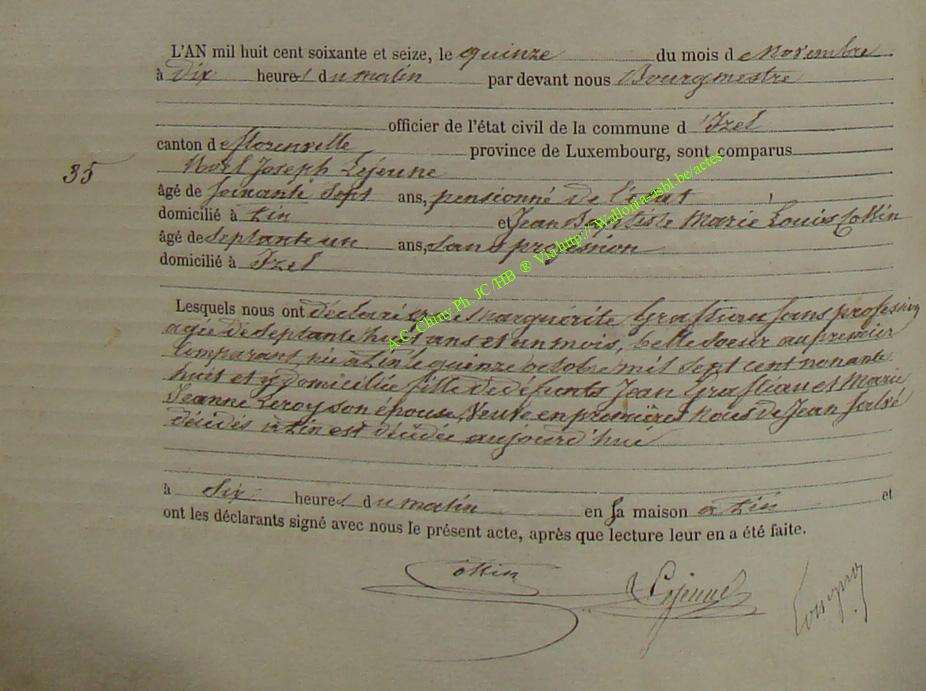 L'AN mil huit cent soixante et seize, le quinze du mois de Novembre
à dix heures du matin par devant nous Bourgmestre
officier de l'état civil de la commune d'Izel
canton de florenville province de Luxembourg, sont comparus
35
Noel Joseph Lejeune
âgé de soixante sept ans, pensionné de l'état
domicilié à Pin et Jean Baptiste Marie Louis Collin
âgé de septante un ans, sans profession
domicilié à Izel
A.C. Chiny Ph. JC /HB ® Via http://Wallonia-asbl.be/actes
Lesquels nous ont déclaré que Marguérite Graftiau sans profession
agée de septante huit ans et un mois, belle soeur au premier
Comparant, née à Pin le quinze octobre mil sept cent nonante
huit et y domiciliée fille de defunts Jean Graftiau et Marie
Jeanne Leroy son épouse, Veuve en premières Noces de Jean
décédé à Pin est décédée aujourd'hui
à Six heures du matin en sa maison à Pin et
ont les déclarants signé avec nous le présent acte, après que lecture leur en a été faite.
Collin Lejeune